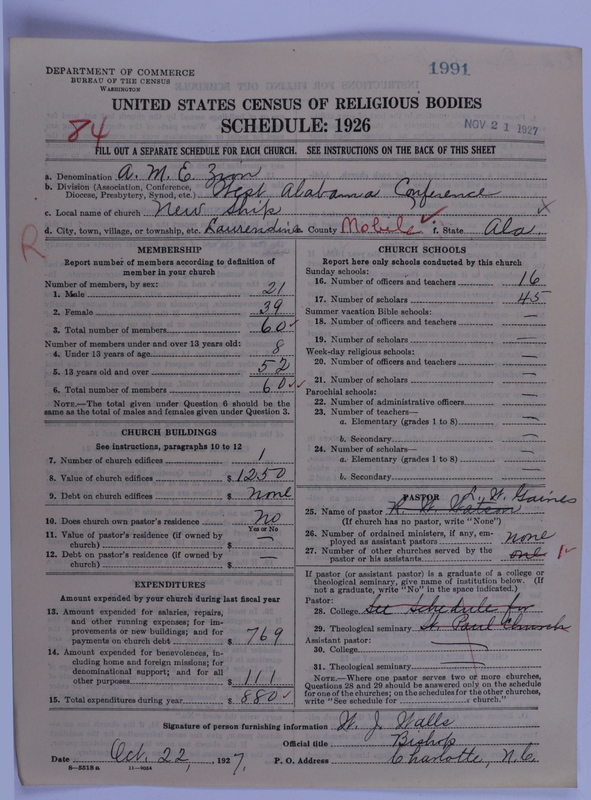 1991
DEPARTMENT OF COMMERCE
BUREAU OF THE CENSUS
WASHINGTON
UNITED STATES CENSUS OF RELIGIOUS BODIES
SCHEDULE: 1926
NOV 21 1927
84
FILL OUT A SEPARATE SCHEDULE FOR EACH CHURCH. SEE INSTRUCTIONS ON THE BACK OF THIS SHEET
a. Denomination A. M. E. Zion
b. Division (Association, Conference, Diocese, Presbytery, Synod, etc.) West Alabama Conference
c. Local name of church New Ship
d. City, town, village, or township, etc. Laurendine County Mobile f. State Ala.
R
MEMBERSHIP
Report number of members according to definition of
member in your church
Number of members, by sex:
1. Male 21
2. Female 39
3. Total number of members 60
Number of members under and over 13 years old:
4. Under 13 years of age 8
5. 13 years old and over 52
6. Total number of members 60
NOTE.—The total given under Question 6 should be the
same as the total of males and females given under Question 3.
CHURCH BUILDINGS
See instructions, paragraphs 10 to 12
7. Number of church edifices 1
8. Value of church edifices $ 1250
9. Debt on church edifices $ none
10. Does church own pastor's residence No
Yes or No
11. Value of pastor's residence (if owned by
church) $ —
12. Debt on pastor's residence (if owned by
church) $ —
EXPENDITURES
Amount expended by your church during last fiscal year
13. Amount expended for salaries, repairs,
and other running expenses; for im-
provements or new buildings; and for
payments on church debt $ 769
14. Amount expended for benevolences, in-
cluding home and foreign missions; for
denominational support; and for all
other purposes $ 111
15. Total expenditures during year $ 880
CHURCH SCHOOLS
Report here only schools conducted by this church
Sunday schools:
16. Number of officers and teachers 16
17. Number of scholars 45
Summer vacation Bible schools:
18. Number of officers and teachers —
19. Number of scholars —
Week-day religious schools:
20. Number of officers and teachers —
21. Number of scholars —
Parochial schools:
22. Number of administrative officers —
23. Number of teachers—
a. Elementary (grades 1 to 8) —
b. Secondary —
24. Number of scholars—
a. Elementary (grades 1 to 8) —
b. Secondary —
PASTOR
L. W. Gaines
25. Name of pastor W. Watson
(If church has no pastor, write "None")
26. Number of ordained ministers, if any, em-
ployed as assistant pastors none
27. Number of other churches served by the
pastor or his assistants one 1
If pastor (or assistant pastor) is a graduate of a college or
theological seminary, give name of institution below. (If
not a graduate, write "No" in the space indicated.)
Pastor:
28. College See Schedule for
29. Theological seminary St. Paul Church
Assistant pastor:
30. College
31. Theological seminary
NOTE.—Where one pastor serves two or more churches,
Questions 28 and 29 should be answered only on the schedule
for one of the churches; on the schedules for the other churches,
write "See schedule for church."
Signature of person furnishing information W. J. Walls
Official title Bishop
Date Oct. 22, 1927. P. O. Address Charlotte, N.C.
8—5518a 11—9064